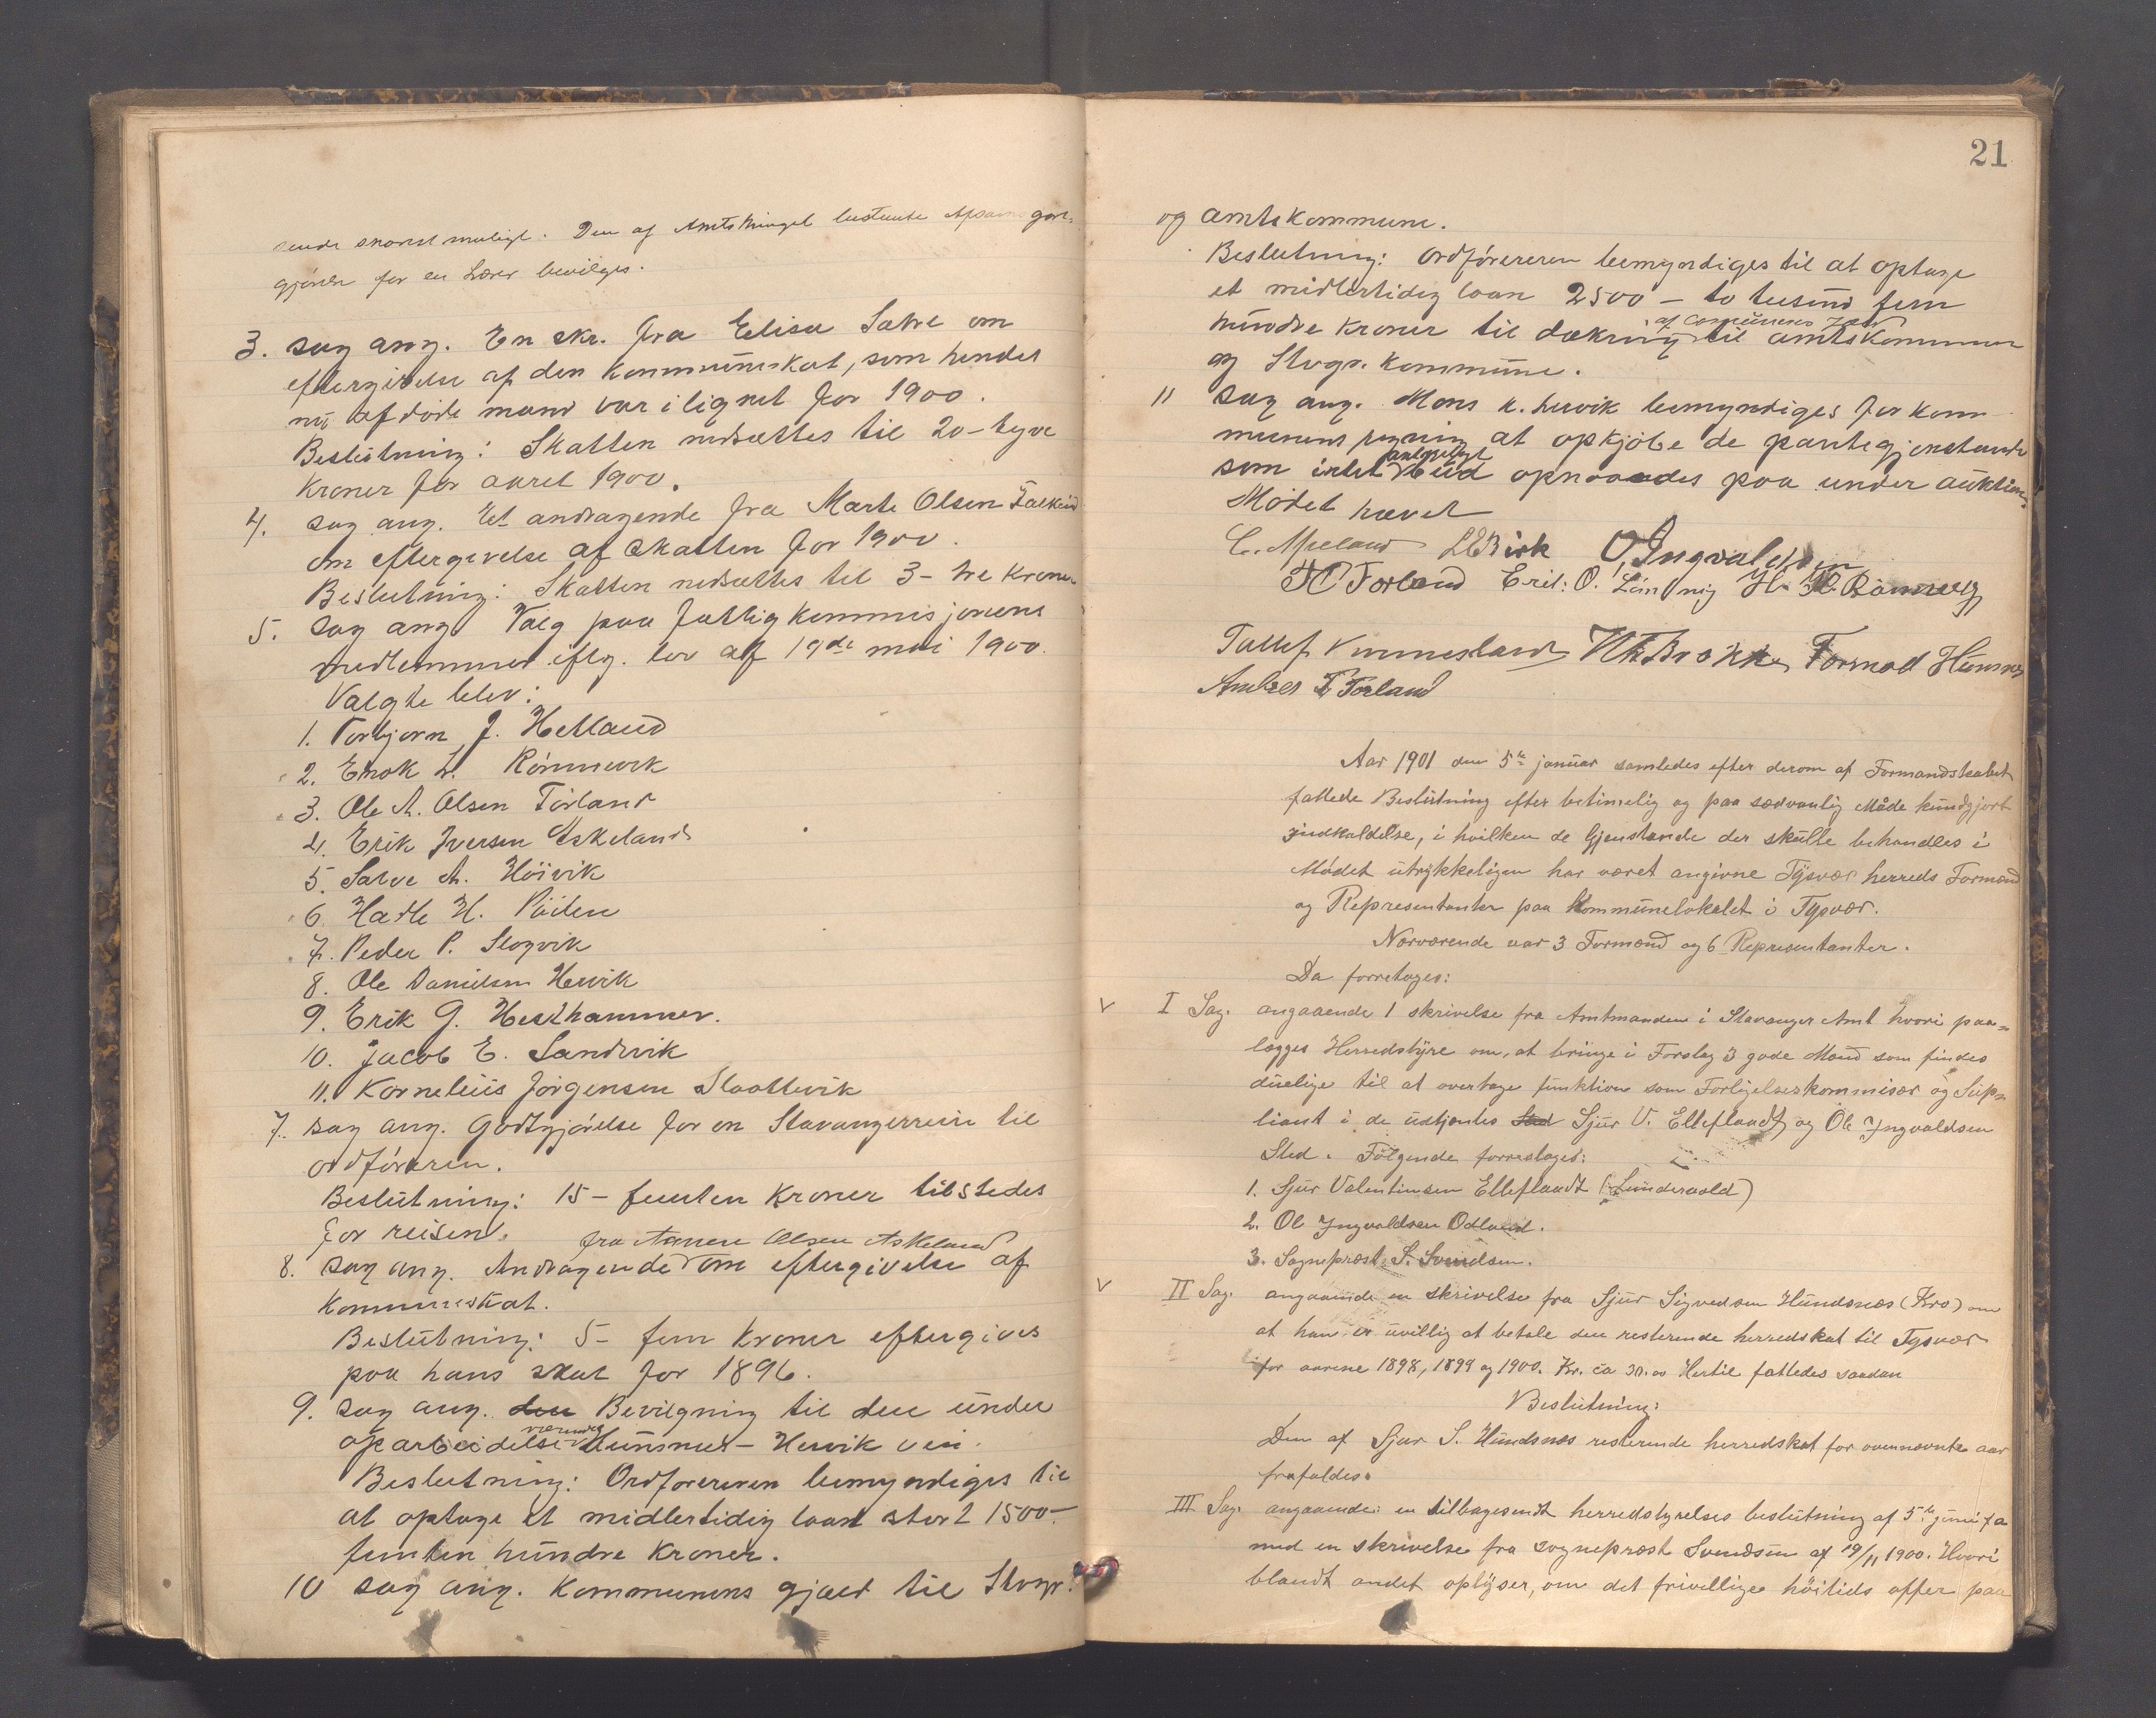 sende snarest muligt. Den af Amtsthinget
gjørelse for en Lærer bevilges.
3. sag ang. En skr. fra Elisa Sakve om
eftergivelse af den kommuneskat, som hendes
nu afdøde mand var ilignet for 1900.
Beslutning: Skatten nedsættes til 20 – tyve
Kroner for aaret 1900.
4. sag ang. Et andragende fra Marte Olsen Falkeid
om eftergivelse af skatten for 1900.
Beslutning: Skatten nedsættes til 3 – tre kroner
5. Sag ang. Valg paa fattigkommisjonens
medlemmer iflg. lov af 19de mai 1900.
Valgte blev:
1. Torbjørn J. Helland
2. Enok L. Rønnevik
3. Ole A. Olsen Førland
4. Erik Iversen Askeland
5. Salve A. Høivik
6. Hatle H.
7. Peder P. Slogvik
8. Ole Danielsen Hervik
9. Erik G. Hesthammer.
10. Jacob E. Sandvik
11. Kornelius Jørgensen Slaattevik
7. Sag ang. Godtgjørelse for en Stavangerreise til
ordføreren.
Beslutning: 15 – femten Kroner tilstedes
for reisen.
fra Aanen Olsen Askeland
8. sag ang. Andragende om eftergivelse af
kommuneskat.
Beslutning: 5 – fem kroner eftergives
paa hans skat for 1896.
9. Sag ang. den Bevilgning til den under
værende
oparbeidelse Hunsnes – Hervik vei.
Beslutning: Ordføreren bemyndiges til
at optage et midlertidig laan stort 1500 –
femten hundre kroner.
10 sag ang. Kommunens gjæld til Stvgr.
21
og amtskommune.
Beslutning: Ordføreren bemyndiges til at optage
et midlertidig laan 2500 – to tusind fem
af comunens gjæld
hundre kroner til dækning til amtskommune
og Stvgr. kommune.
11 Sag ang. Mons K. Hervik bemyndiges for kom
munens regning at opkjøbe de pantegjenstande
antageligt
som intet bud opnaaedes paa under auktion.
Mødet hævet
C. Apeland LEBirk O. Ingvaldsen
T C Førland Erik O. H. H. Rønnevig
Tollef Vinnesland Tormod Hunsnes
Anders T Førland
Aar 1901 den 5te januar samledes efter derom af Formandskabet
fattede Beslutning efter betimelig og paa sædvanlig Måde kundgjort
Indkaldelse, i hvilken de Gjenstande der skulle behandles i
Mødet utrykkeligen har været angivne Tysvær herreds Formænd
og Representanter paa Kommunelokalet i Tysvær.
Nærværende var 3 Formænd og 6 Representanter.
Da forretoges:
V I Sag. angaaende 1 skrivelse fra Amtmanden i Stavanger Amt hvori paa=
lægges Herredstyre om, at bringe i Forslag 3 gode Mænd som findes
duelige til at overtage funktion som Forligelseskommisær og Sup=
liant i de udtjentes Sted Sjur V. Elleflaadt og Ole Ingvaldsen
Sted. Følgende forreslages:
1. Sjur Valentinsen Elleflaadt (Lundervold)
2. Ol Ingvaldsen Odland.
3. Sognepræst S. Svendsen.
V II Sag. angaaende en skrivelse fra Sjur Sigvedsen Hundsnæs (Kro) om
at han er uvillig at betale den resterende herredskat til Tysvær
for aarene 1898, 1899 og 1900. Kr. ca 30.00 Hertil fattedes saadan
Beslutning:
Den af Sjur S. Hundsnæs resterende herredskat for ovennævnte aar
frafaldes.
III Sag. angaaende: en tilbagesendt herredstyrelses beslutning af 5te juni f a
med en skrivelse fra sognepræst Svendsen af 19/11 1900. Hvori
blandt andet oplyser, om det frivillige høitids offer paa